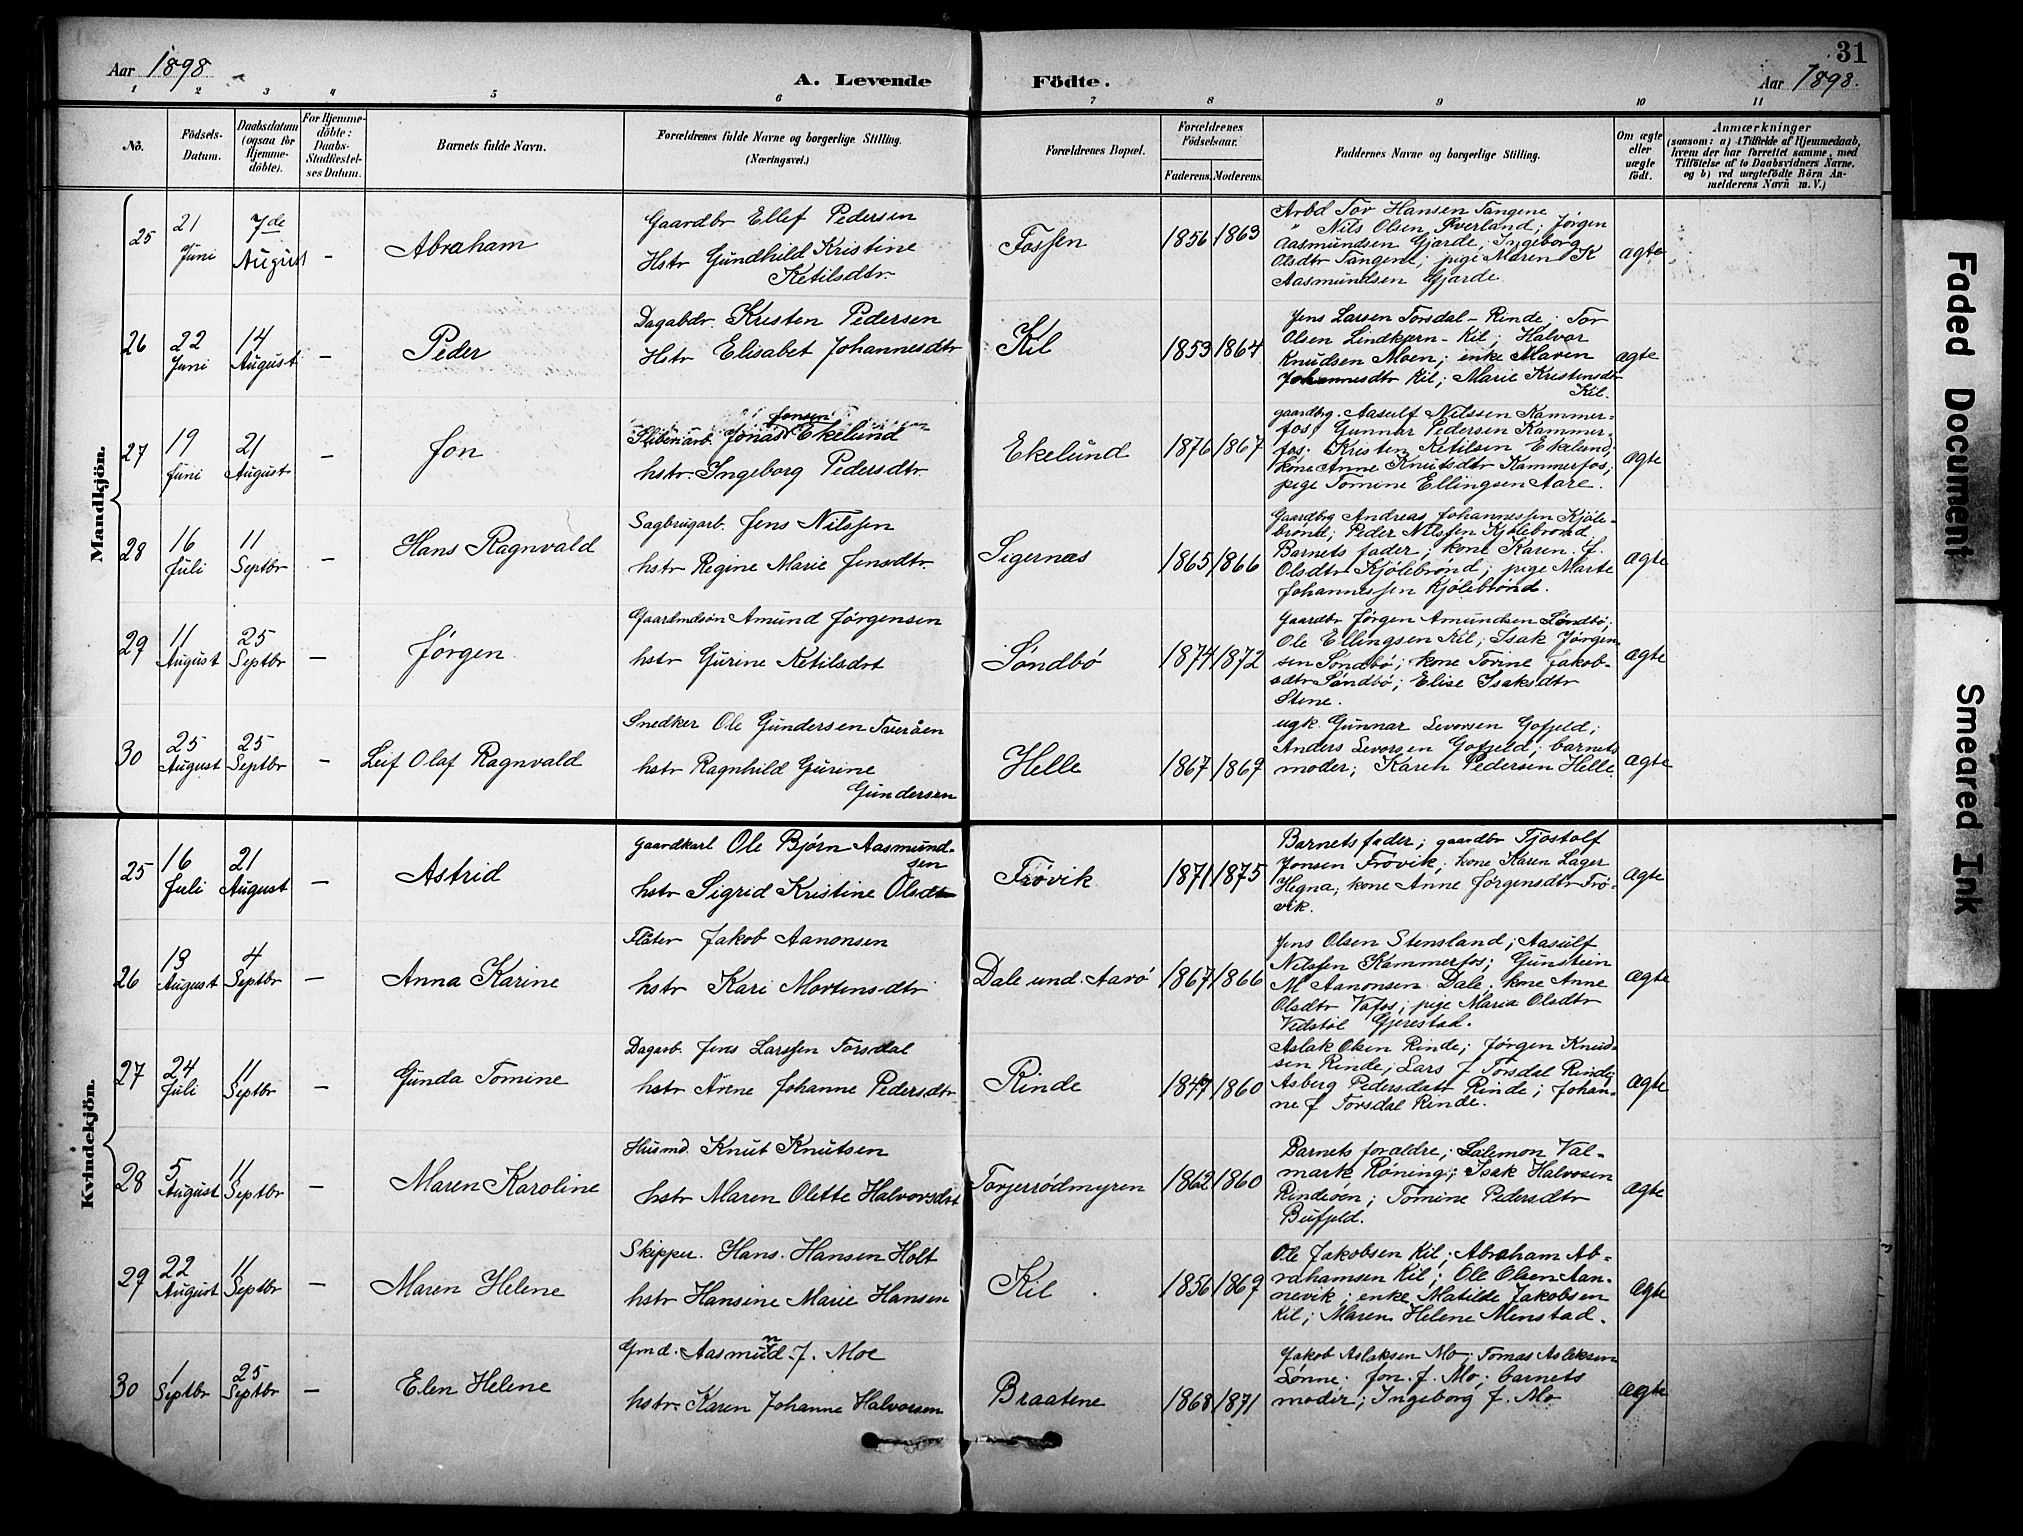 31
Aar 1898
A. Levende
Födte.
Aar 1898.
1 2 3 4 5 6 7 8 9 10 11
No.
Födsels-
Datum.
Daabsdatum
(ogsaa for
Hjemme-
döbte).
For Hjemme-
döbte:
Daabs-
Stadfæstel-
ses Datum.
Barnets fulde Navn.
Forældrenes fulde Navne og borgerlige Stilling.
(Næringsvei.)
Forældrenes Bopæl.
Forældrenes
Födselsaar.
Faderens. Moderens.
Faddernes Navne og borgerlige Stilling.
Om ægte
eller
uægte
födt.
Anmærkninger
(saasom: a) i Tilfælde af Hjemmedaab,
hvem der har forrettet samme, med
Tilföielse af to Daabsvidners Navne,
og b) ved uægtefödte Börn An-
melderens Navn m. V.)
Mandkjön.
25
21
Juni
7de
August
-
Abraham
Gaardbr Ellef Pedersen
Hstr Gundhild Kristine
Ketilsdtr.
Fossen
1856 1863
Arbd Tov Hansen Tangene
" Nils Olsen Øverland; Jørgen
Aasmundsen Gjerde, Ingeborg
Olsdtr Tangene; pige Maren K
Aasmundsen Gjerde.
ægte
26
22
Juni
14
August
-
Peder
Dagabdr. Kristen Pedersen
Hstr Elisabet Johannesdtr
Kil
1853 1864
Jens Larsen Torsdal - Rinde; Tor
Olsen Lindkjærn - Kil; Halvor
Knudsen Moen; enke Maren
Johannesdtr Kil; Marie Kristensdtr
Kil.
ægte
27
19
Juni
21
August
-
Jon
Jonsen
Sliberiarb. Jonas Ekelund
hstr. Ingeborg Pedersdtr.
Ekelund
1876 1867
gaardbrg. Aasulf Nilssen Kammer-
fos; Gunnar Pedersen Kammer-
fos. Kristen Ketilsen Ekelund;
kone Anne Knutsdtr Kammerfos;
pige Tomine Ellingsen Aare.
ægte
28
16
Juli
11
Septbr
-
Hans Ragnvald
Sagbrugarb. Jens Nilssen
hstr Regine Marie Jensdtr
Sigernæs
1865 1866
Gaardbrg Andreas Johannessen Kjöle-
brönd; Peder Nilssen Kjölebrønd
Barnets fader; kone Karen J.
Olsdtr Kjölebrönd; pige Marte
Johannessen Kjölebrönd.
ægte
29
11
August
25
Septbr
-
Jørgen
Gaarmdsön Amund Jørgensen
hstr Gurine Ketilsdrt
Söndbö
1874 1872
Gaardbr Jørgen Amundsen Söndbö;
Ole Ellingsen Kil; Isak Jørgen-
sen Söndbö; kone Torine Jakob-
sdtr Söndbö; Elise Isaksdtr
Stene.
ægte
30
25
August
25
Septbr
-
Leif Olaf Ragnvald
Snedker Ole Gundersen Tveråen
hstr Ragnhild Gurine
Gundersen
Helle
1867 1869
ugk. Gunnar Levorsen Gofjeld;
Anders Levorsen Gofjeld; barnets
moder; Karen Pedersen Helle.
ægte
Kvindekjön.
25
16
Juli
21
August
-
Astrid
gaardkarl Ole Bjørn Aasmund-
sen
hstr Sigrid Kristine Olsdtr
Frövik
1871 1875
Barnets fader; gaardbr Tjostolf
Jonsen Frövik; kone Karen Lager
Hegna; kone Anne Jørgensdtr Frö-
vik.
ægte
26
13
August
4
Septbr
-
Anna Karine
Flåter Jakob Aanonsen
hstr Kari Mortensdtr
Dale und. Aarö
1867 1866
Jens Olsen Stensland; Aasulf
Nilssen Kammerfos; Gunstein
M Aanonsen Dale; kone Anne
Olsdtr Vafos; pige Maria Olsdtr
Vedstöl Gjerestad.
ægte
27
24
Juli
11
Septbr
-
Gunda Tomine
Dagarb. Jens Larssen Torsdal
hstr Arene Johanne Pedersdtr
Rinde
1847 1860
Aslak Olsen Rinde; Jørgen Knud-
sen Rinde; Lars J Torsdal Rinde;
Asberg Pedersdatr Rinde; Johan-
ne J Torsdal Rinde.
ægte
28
5
August
11
Septbr
-
Maren Karoline
Husmd. Knut Knutsen
hstr Maren Olette Halvorsdrt
Torjerrödmyren
1862 1860
Barnets foraldre; Salemon Val-
mark Röning; Isak Halvosen
Rindeöen; Tomine Pedersdtr
Bufjeld.
ægte
29
22
August
11
Septbr
-
Maren Helene
Skipper. Hans. Hansen Holt
hstr Hansine Marie Hansen
Kil.
1856 1869
Ole Jakobsen Kil; Abraham Ab-
rahamsen Kil; Ole Olsen Aan-
nevik; enke Matilde Jakobsen
Kil; Maren Helene Menstad.
ægte
30
1
Septbr
25
Septbr
-
Elen Helene
Gmd. Aasmund J. Moe
hstr. Karen Johanne Halvorsen
Braatene
1868 1871
Jakob Aslaksen Mo; Tomas Asleksen
Lönne; Jon. J. Mo; barnets
moder; Ingeborg J. Mo
ægte
Faded Document
Smeared Ink